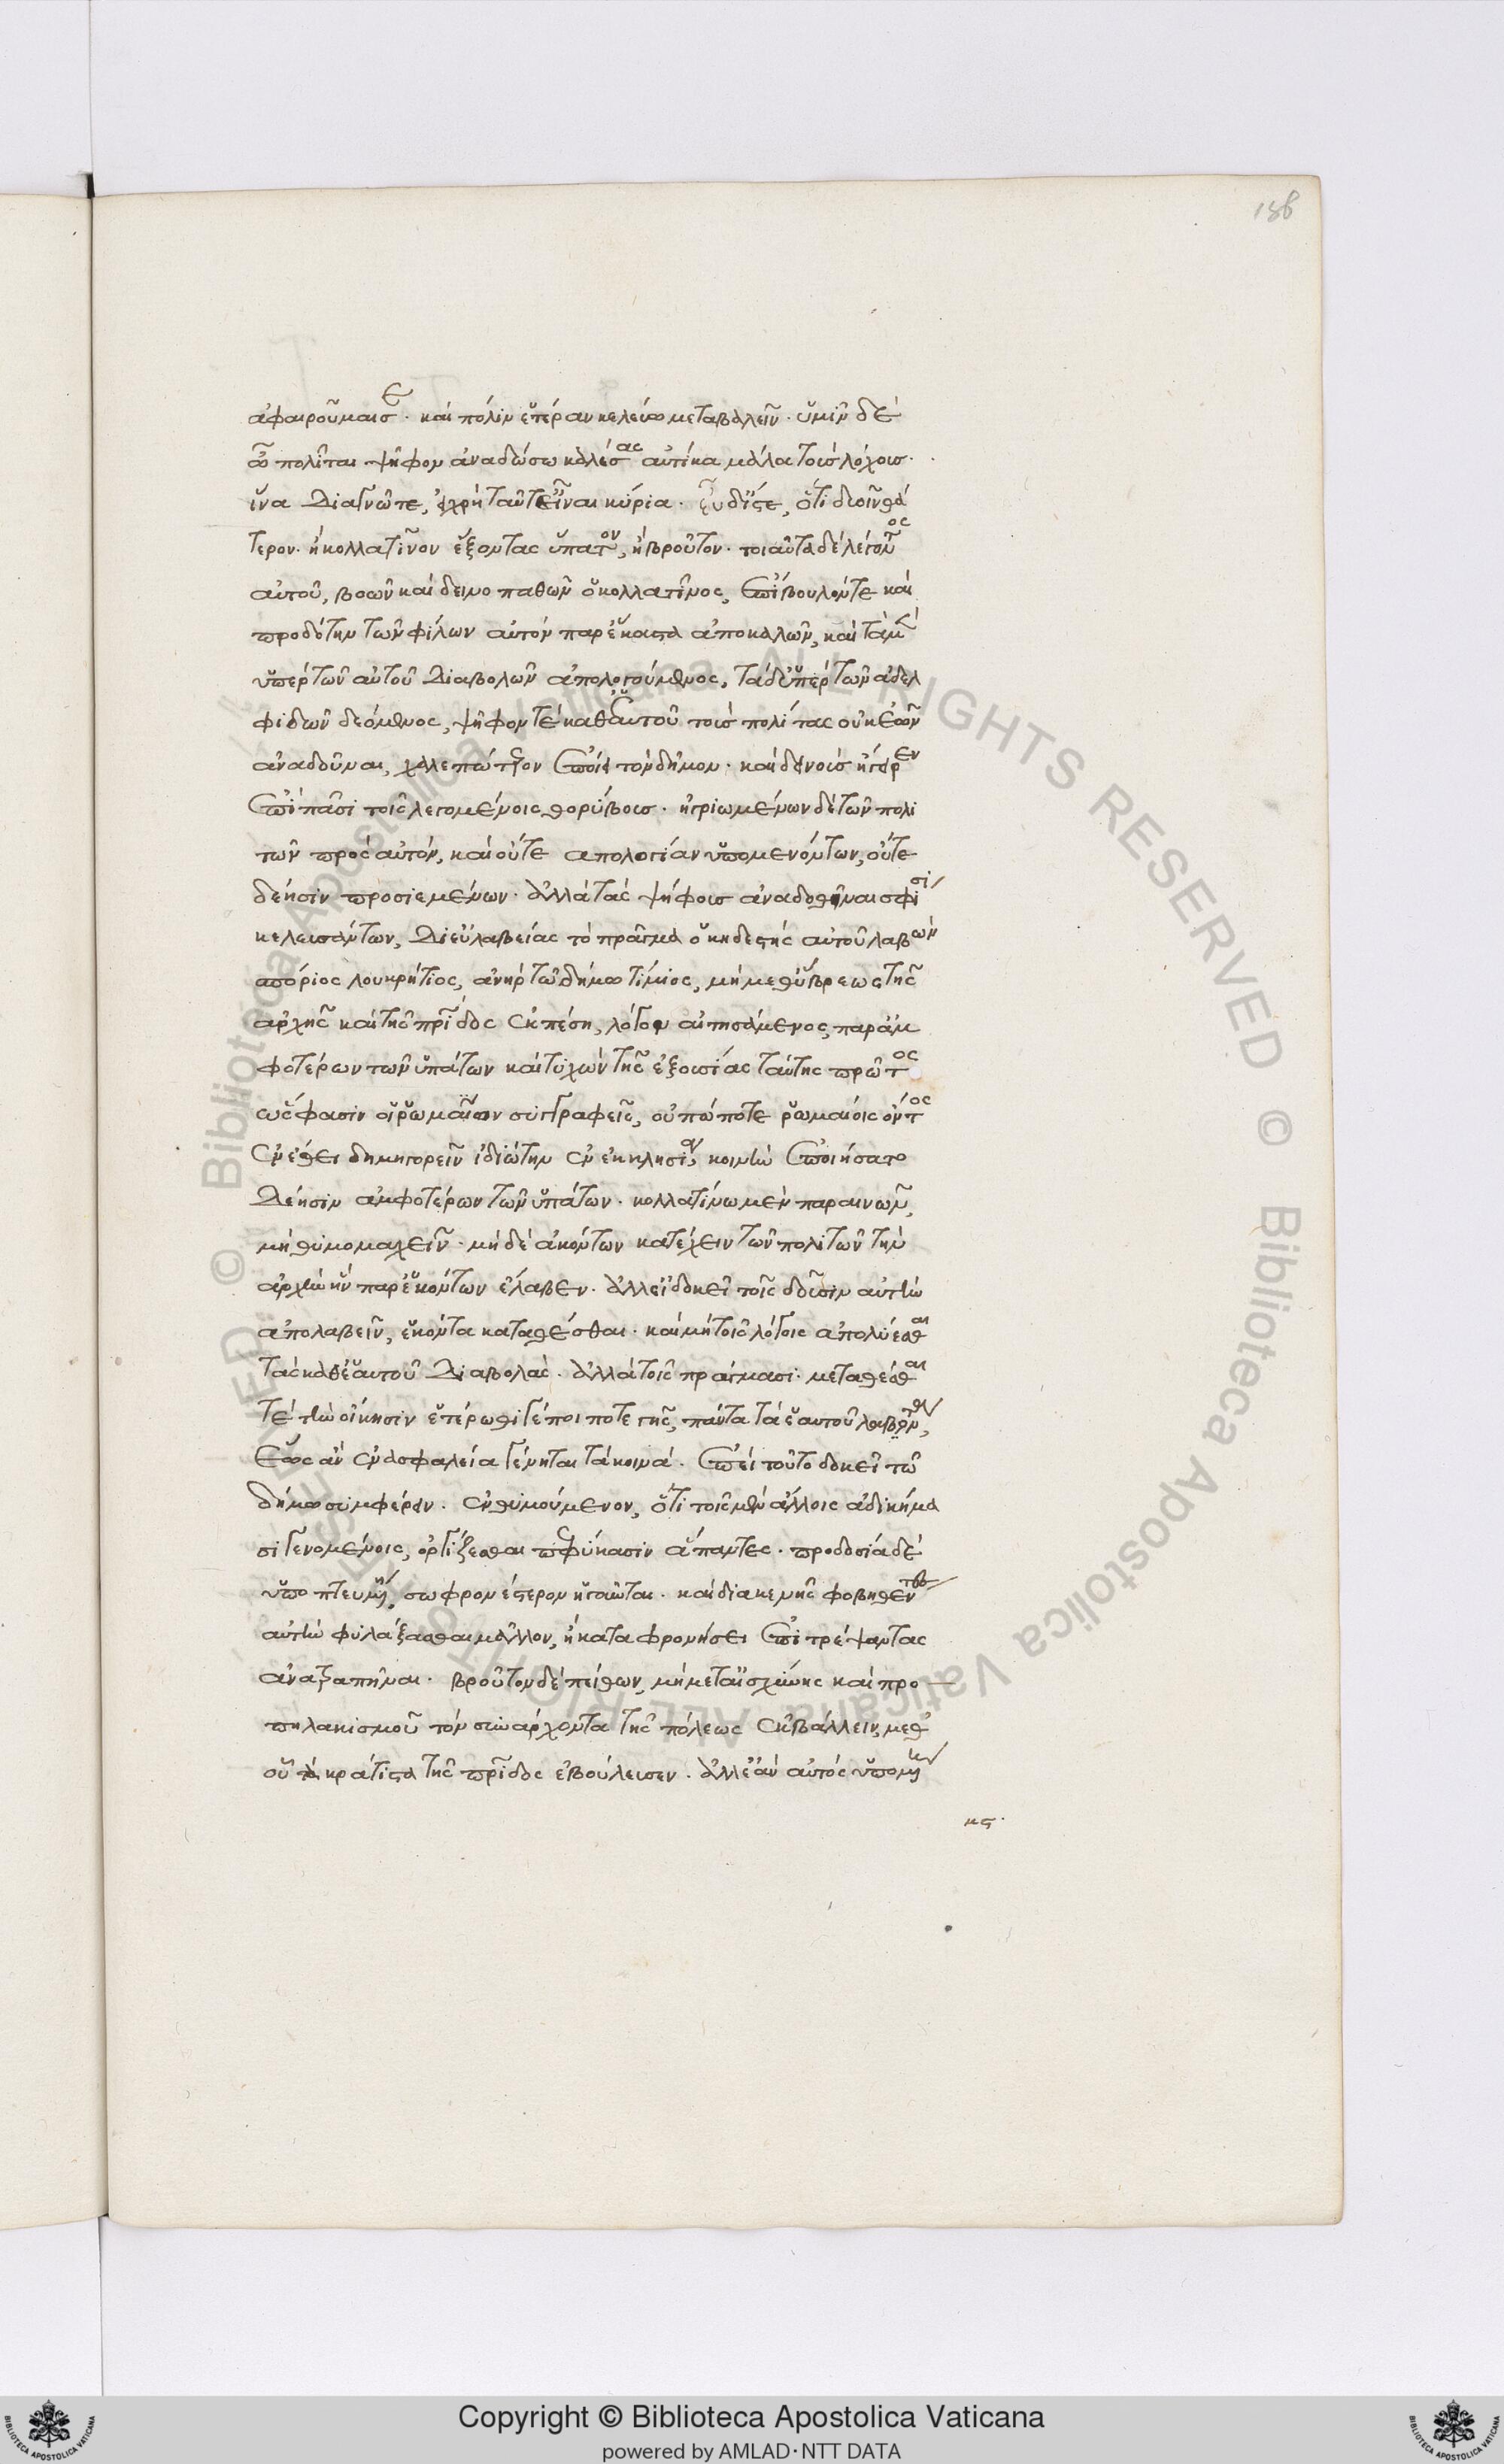 188
ἀφαιροῦμαι σε. καὶ πόλιν ἑτέραν κελεύω μεταβαλεῖν. ὑμῖν δὲ
ὦ πολῖται ψῆφον ἀναδώσω καλέσας αὐτίκα μάλα τοὺς λόχους.
ἵνα διαγνῶτε, εἰ χρὴ ταῦτ' εἶναι κύρια. εὖ δ' ἴστε, ὅτι δυοῖν θά
τερον. ἢ κολλατῖνον ἕξοντας ὕπατον, ἢ βροῦτον. τοιαῦτα δὲ λέγοντος
αὐτοῦ, βοῶν καὶ δεινοπαθῶν ὁ κολλατῖνος, ἐπίβουλόν τε καὶ
προδότην τῶν φίλων αὐτὸν παρ' ἕκαστα ἀποκαλῶν, καὶ τὰ μὲν
ὑπὲρ τῶν αὑτοῦ διαβολῶν ἀπολογούμενος, τὰ δ' ὑπὲρ τῶν ἀδελ
φιδῶν δεόμενος, ψῆφόν τε καθ' ἑαυτοῦ τοῖς πολίταις οὐκ ἐῶν
ἀναδοῦναι, χαλεπώτερον ἐποίει τὸν δῆμον. καὶ δεινοὺς ἤγειρεν
ἐπὶ πᾶσι τοῖς λεγομένοις θορύβους. ἠγριωμένων δὲ τῶν πολι
τῶν πρὸς αὐτόν, καὶ οὔτε ἀπολογίαν ὑπομενόντων, οὔτε
δέησιν προσιεμένων. ἀλλὰ τὰς ψήφους ἀναδοθῆναι σφίσι
κελευσάντων, δι' εὐλαβείας τὸ πρᾶγμα ὁ κηδεστὴς αὐτοῦ λαβὼν
σπόριος λουκρήτιος, ἀνὴρ τῷ δήμῳ τίμιος, μὴ μεθ' ὕβρεως τῆς
ἀρχῆς καὶ τῆς πρίδος ἐκπέσῃ, λόγον αἰτησάμενος παρ' ἀμ
φοτέρων τῶν ὑπάτων καὶ τυχὼν τῆς ἐξουσίας ταύτης πρῶτος
ὥς φασιν οἱ ῥωμαίων συγγραφεῖς, οὐπώποτε ῥωμαίοις ὄντος
ἐν ἔθει δημηγορεῖν ἰδιώτην ἐν ἐκκλησίαν, κοινὴν ἐποιήσατο
δέησιν ἀμφοτέρων τῶν ὑπάτων. κολλατίνω μὲν παραινῶν,
μὴ θυμομαχεῖν. μηδὲ ἀκόντων κατέχειν τῶν πολιτῶν τὴν
ἀρχὴν ἣν παρ' ἑκόντων ἔλαβεν. ἀλλ' εἰ δοκεῖ τοῖς δοῦσιν αὐτὴν
ἀπολαβεῖν, ἑκόντα καταθέσθαι. καὶ μὴ τοῖς λόγοις ἀπολύεσθαι
τὰς καθ' ἑαυτοῦ διαβολάς. ἀλλὰ τοῖς πράγμασι. μεταθέσθαι
τὲ τὴν οἴκησιν ἑτέρωθί γέ ποι ποτε γῆς, πάντα τὰ ἑαυτοῦ λαβόντα,
ἕως ἂν ἐν ἀσφαλεία γένηται τὰ κοινά. ἐπεὶ τοῦτο δοκεῖ τῷ
δήμῳ συμφέρειν. ἐνθυμούμενον, ὅτι τοῖς μὲν ἄλλοις ἀδικήμα
σι γενομένοις, ὀργίζεσθαι πεφύκασιν ἅπαντες. προδοσία δὲ
ὑποπτευομένη, σωφρονέστερον ἡγοῦνται. καὶ διακενῆς φοβηθέντας
αὐτὴν φυλάξασθαι μᾶλλον, ἢ καταφρονήσει ἐπιτρέψαντας
ἀναξαπῆναι. βροῦτον δὲ πείθων, μὴ μετ' αἰσχύνης καὶ προ
πηλακισμοῦ τὸν συνάρχοντα τῆς πόλεως ἐκβάλλειν, μεθ'
οὗ τὰ κράτιστα τῆς πρίδος ἐβούλευσεν. ἀλλ' ἐὰν αὐτὸς ὑπομένῃ
κς.
© Biblioteca Apostolica Vaticana ALL RIGHTS RESERVED © Biblioteca Apostolica Vaticana ALL RIGHTS RESERVED
Copyright © Biblioteca Apostolica Vaticana
powered by AMLAD·NTT DATA